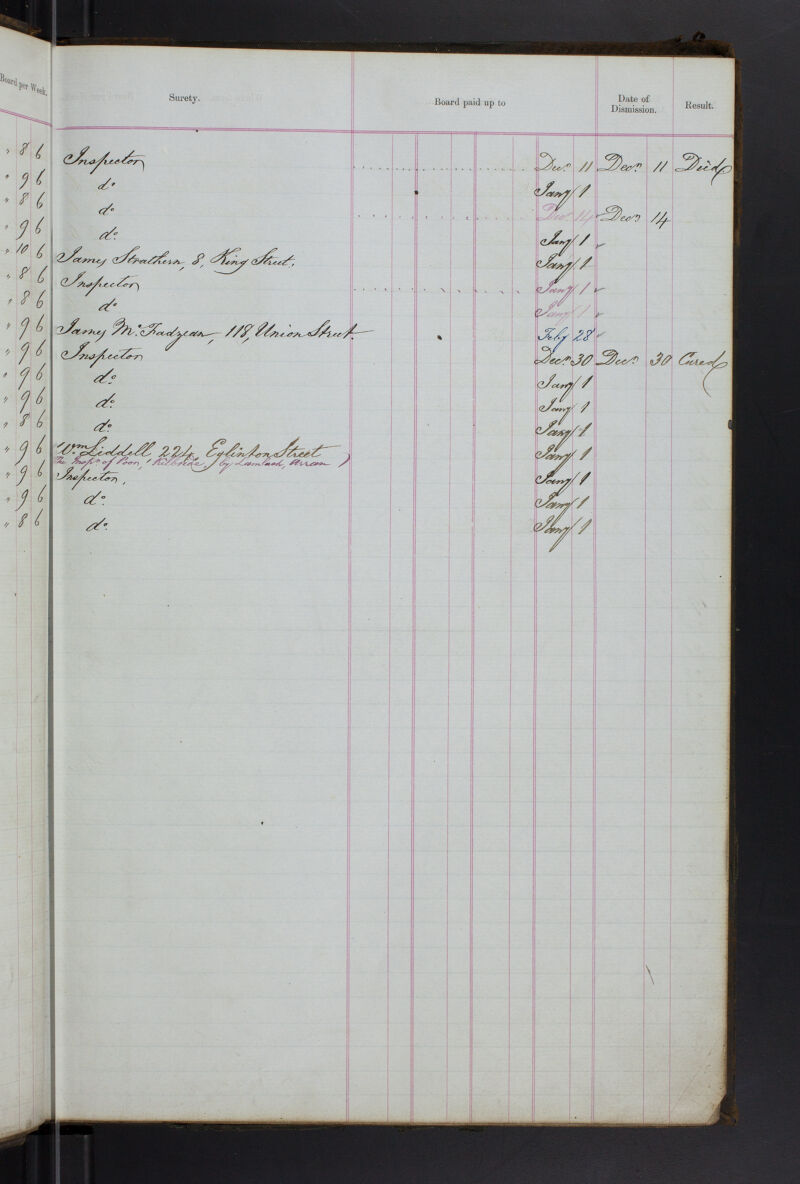 Board per Week.
Surety.
Board paid up to
Date of Dismission.
Result.
" 8 6 Inspector Decr. 11 Decr. 11 Died
" 9 6 do Jany 1
" 8 6 do Decr 14 Decr 14
" 9 6 do. Jany 1
" 10 6 James Strathern, 8, King Street. Jany 1
" 8 6 Inspector Jany 1
" 8 6 do Jany 1
" 9 6 James Mc.Fadzean, 118, Union Street. Feby 28
" 9 6 Inspector Decr. 30 Decr. 30 Cured
" 9 6 do. Jany 1
" 9 6 do. Jany 1
" 8 6 do. Jany 1
" 9 6 Wm Liddell, 224, Eglinton Street Jany 1
The Inspr. of Poor, Kilbride, by Lamlash, Arran
" 9 6 Inspector, Jany 1
" 9 6 do. Jany 1
" 8 6 do. Jany 1